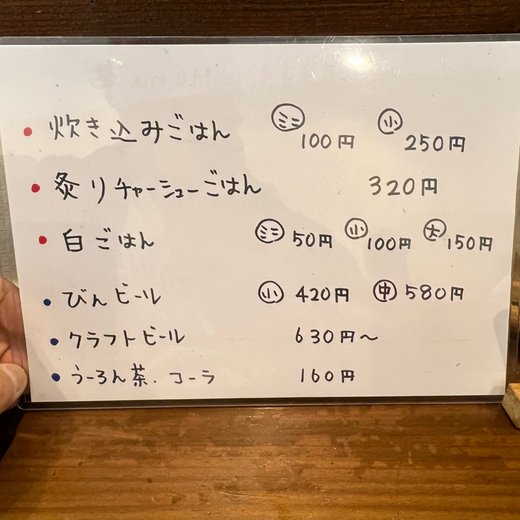 炊き込みごはん ミニ 100円 小 250円
炙りチャーシューごはん 320円
白ごはん ミニ 50円 小 100円 大 150円
びんビール 小 420円 中 580円
クラフトビール 630円～
うーろん茶.コーラ 160円